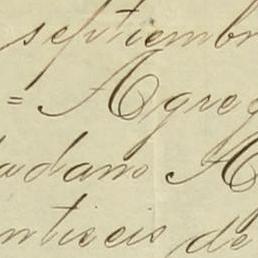 septiembr
= Agreg
adano A
ntiseis de